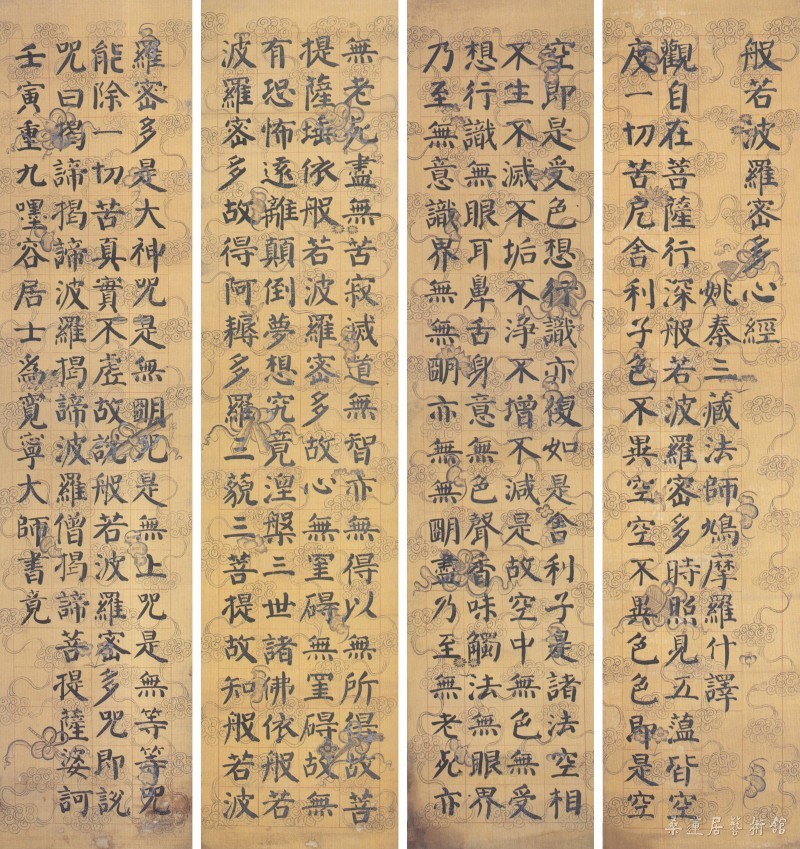 般若波羅密多心經
姚秦三藏法師鳩摩羅什譯
觀自在菩薩行深般若波羅密多時照見五蘊皆空
度一切苦厄舍利子色不異空空不異色色即是空
空即是受色想行識亦復如是舍利子是諸法空相
不生不滅不垢不淨不增不減是故空中無色無受
想行識無眼耳鼻舌身意無色聲香味觸法無眼界
乃至無意識界無無明亦無無明盡乃至無老死亦
無老死盡無苦寂滅道無智亦無得以無所得故菩
提薩埵依般若波羅密多故心無罣礙無罣礙故無
有恐怖遠離顛倒夢想究竟涅槃三世諸佛依般若
波羅密多故得阿耨多羅三藐三菩提故知般若波
羅密多是大神咒是無明咒是無上咒是無等等咒
能除一切苦真實不虛故說般若波羅密多咒即說
咒曰揭諦揭諦波羅揭諦波羅僧揭諦菩提薩婆訶
壬寅重九嘿容居士為寬寧大師書竟
桑蓮居藝術館